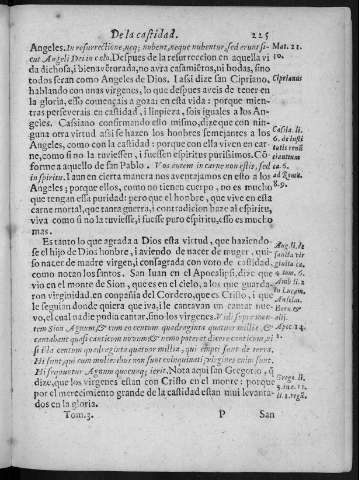 De la castidad. 225
Angeles. In resurrectione, neq; nubent, neque nubentur, sed erunt si-
cut Angeli Dei in cœlo. Despues de la resurreccion en aquella vi
da dichosa, i bienavēturada, no avra casamiētos, ni bodas, sino
todos serán como Angeles de Dios. I assi dize san Cipriano,
hablando con unas virgenes, lo que despues aveis de tener en
la gloria, esso començais a gozar en esta vida: porque mien-
tras perseverais en castidad, i limpieza, sois iguales a los An-
geles. Cassiano confirmando esto mismo, dize que con nin-
guna otra virtud assi se hazen los hombres semejantes a los
Angeles, como con la castidad: porque con ella viven en car-
ne, como si no la tuviessen, i fuessen espiritus purissimos. Cō
forme a aquello de san Pablo. Vos autem in carne non estis, sed
in spiritu. I aun en cierta manera nos aventajamos en esto a los
Angeles; porque ellos, como no tienen cuerpo, no es mucho
que tengan essa puridad: pero que el hombre, que vive en esta
carne mortal, que tanta guerra, i contradicion haze al espiritu,
viva como si no la tuviesse, i fuesse puro espiritu, esso es mucho
mas.
Es tanto lo que agrada a Dios esta virtud, que haziendo-
se el hijo de Dios hombre, i aviendo de nacer de muger, qui-
so nacer de madre virgen, i consagrada con voto de castidad,
como notan los santos. San Juan en el Apocalipsi, dize que
vio en el monte de Sion, que es en el cielo, a los que guarda-
ron virginidad, en compañia del Cordero, que es Cristo, i que
le seguian donde quiera que iva, i le cantavan un cantar nue-
vo, el cual nadie podia cantar, sino los virgenes. Vidi supra mon-
tem Sion Agnum, & cum eo centum quadraginta quatuor millia, &
cantabant quasi canticum novum, & nemo poterat dicere canticum, ni
si illa centum quadraginta quatuor millia, qui empti sunt de terra.
Hi sunt, qui cum mulieribus non sunt coinquinati, virgines enim sunt.
Hi sequuntur Agnum quocunq; ierit. Nota aqui san Gregorio, q̄
dize, que los virgenes estan con Cristo en el monte: porque
por el merecimiento grande de la castidad estan mui levanta-
dos en la gloria.
Tom. 3. P San
Mat. 22.
30.
Ciprianus
Casia. li.
6. de insti
tutis
8.9.
Aug. li. de
tom. 6.
Apoc. 14.